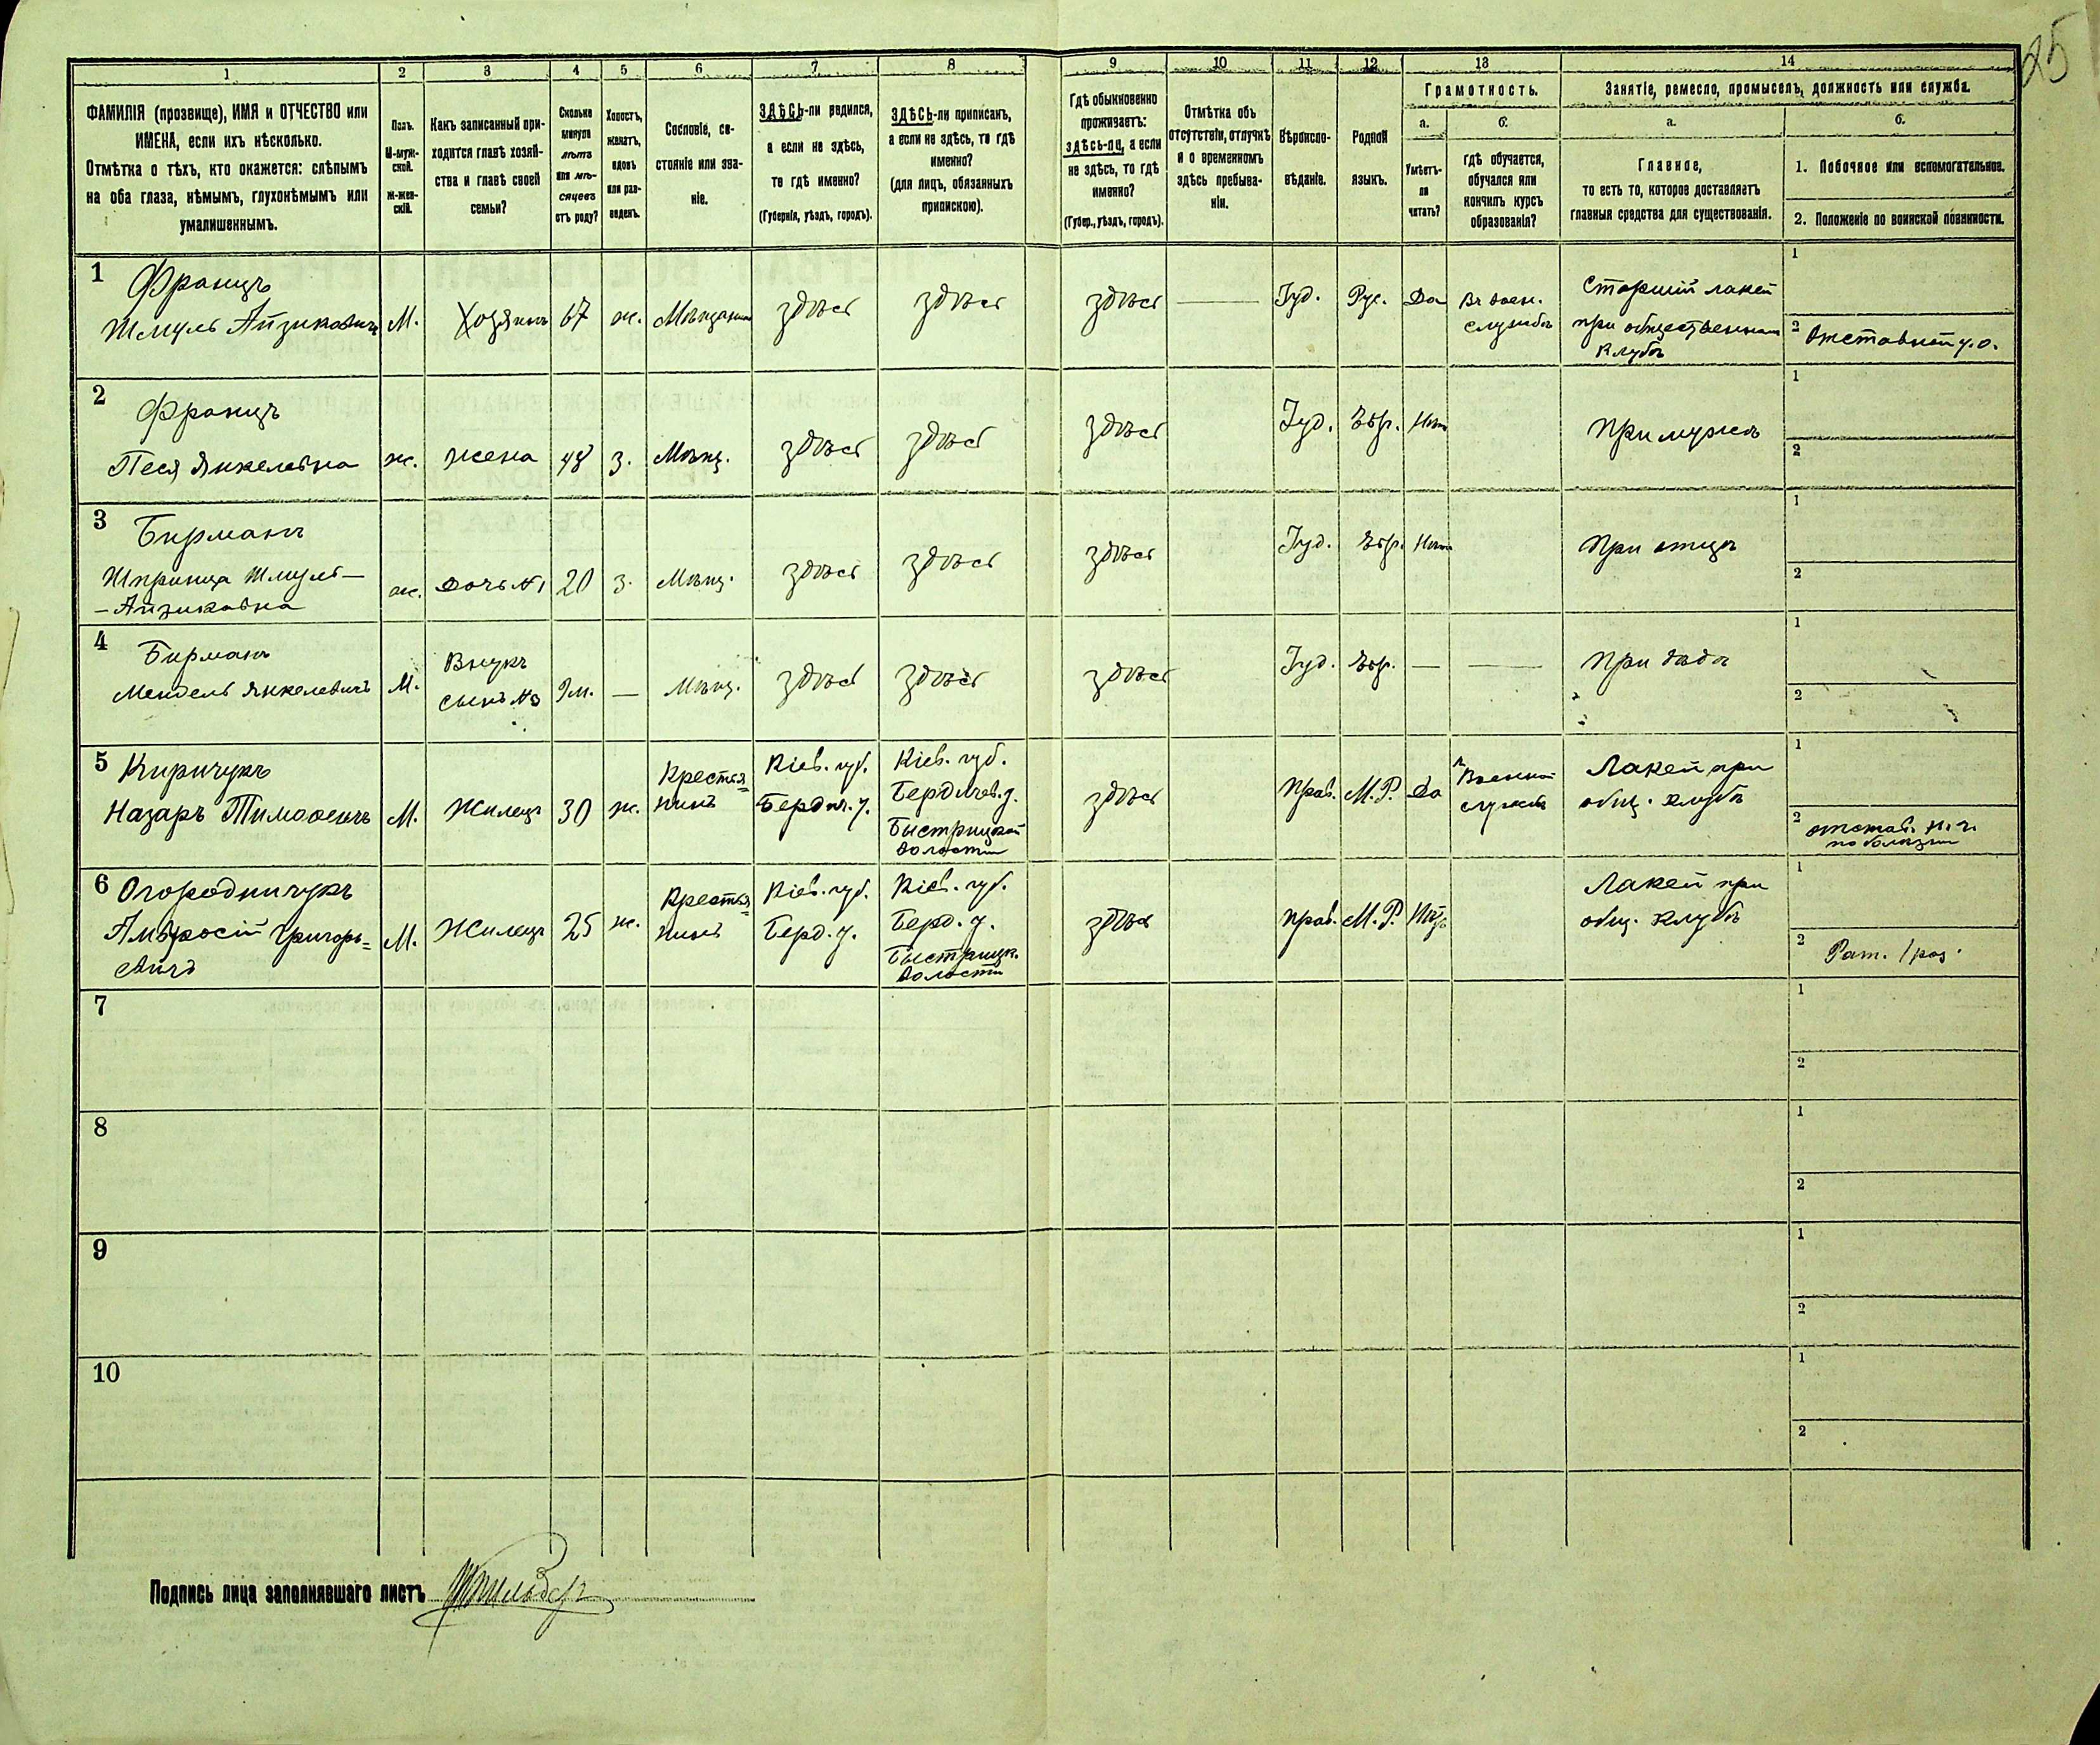 25
1 2 3 4 5 6 7 8 9 10 11 12 13 14
ФАМИЛІЯ (прозвище), ИМЯ и ОТЧЕСТВО или
ИМЕНА, если ихъ нѣсколько.
Отмѣтка о тѣхъ, кто окажется: слѣпымъ
на оба глаза, нѣмымъ, глухонѣмымъ или
умалишеннымъ.
Полъ.
М-муж-
ской.
Ж-жен-
скій.
Какъ записанный при-
ходится главѣ хозяй-
ства и главѣ своей
семьи?
Сколько
минуло
лѣтъ
или мѣ-
сяцевъ
отъ роду?
Холостъ,
женатъ,
вдовъ
или раз-
веденъ.
Сословіе, со-
стояніе или зва-
ніе.
ЗДѢСЬ-ли родился,
а если не здѣсь,
то гдѣ именно?
(Губернія, уѣздъ, городъ).
ЗДѢСЬ-ли приписанъ,
а если не здѣсь, то гдѣ
именно?
(для лицъ, обязанныхъ
припискою).
Гдѣ обыкновенно
проживаетъ:
здѣсь-ли, а если
не здѣсь, то гдѣ
именно?
(Губер., уѣздъ, городъ).
Отмѣтка объ
отсутствіи, отлучкѣ
и о временномъ
здѣсь пребыва-
ніи.
Вѣроиспо-
вѣданіе.
Родной
языкъ.
Грамотность.
а.
Умѣетъ-
ли
читать?
б.
гдѣ обучается,
обучался или
кончилъ курсъ
образованія?
Занятіе, ремесло, промыселъ, должность или служба.
а.
Главное,
то есть то, которое доставляетъ
главныя средства для существованія.
б.
1. Побочное или вспомогательное.
2. Положеніе по воинской повинности.
1 Францъ
Шмуль Айзиковичъ
М.
Хозяинъ
67
ж.
Мѣщанинъ
здѣсь
здѣсь
здѣсь
Іуд.
Рус.
Да
Въ воен.
службѣ
Старшій лакей
при общественномъ
клубѣ
1
2 Отставной у.о.
2 Францъ
Песя Янкелевна
ж.
жена
48
з.
Мѣщ.
здѣсь
здѣсь
здѣсь
Іуд.
Евр.
Нѣтъ
При мужѣ
1
2
3 Бирманъ
Шпринца Шмуль–
– Айзиковна
ж.
дочь №1
20
з.
Мѣщ.
здѣсь
здѣсь
здѣсь
Іуд.
Евр.
Нѣтъ
При отцѣ
1
2
4 Бирманъ
Мендель Янкелевичъ
М.
Внукъ
сынъ №3
9м.
—
Мѣщ.
здѣсь
здѣсь
здѣсь
Іуд.
Евр.
—
—
При дѣдѣ
1
2
5 Киричукъ
Назаръ Тимоѳеевъ
М.
Жилецъ
30
ж.
Крестья=
нинъ
Кіев. губ.
Бердич. у.
Кіев. губ.
Бердичев. у.
Быстрицкой
волости
здѣсь
Прав.
М.Р.
Да
Военной
службѣ
Лакей при
общ. клубѣ
1
2 отстав. н.ч.
по болѣзни
6 Огородничукъ
Амвросій Григорь=
евичъ
М.
Жилецъ
25
ж.
Крестья=
нинъ
Кіев. губ.
Берд. у.
Кіев. губ.
Берд. у.
Быстрицк.
волости
здѣсь
прав.
М.Р.
Нѣтъ
Лакей при
общ. клубѣ
1
2 Рат. 1 раз.
7
1
2
8
1
2
9
1
2
10
1
2
Подпись лица заполнявшаго листъ